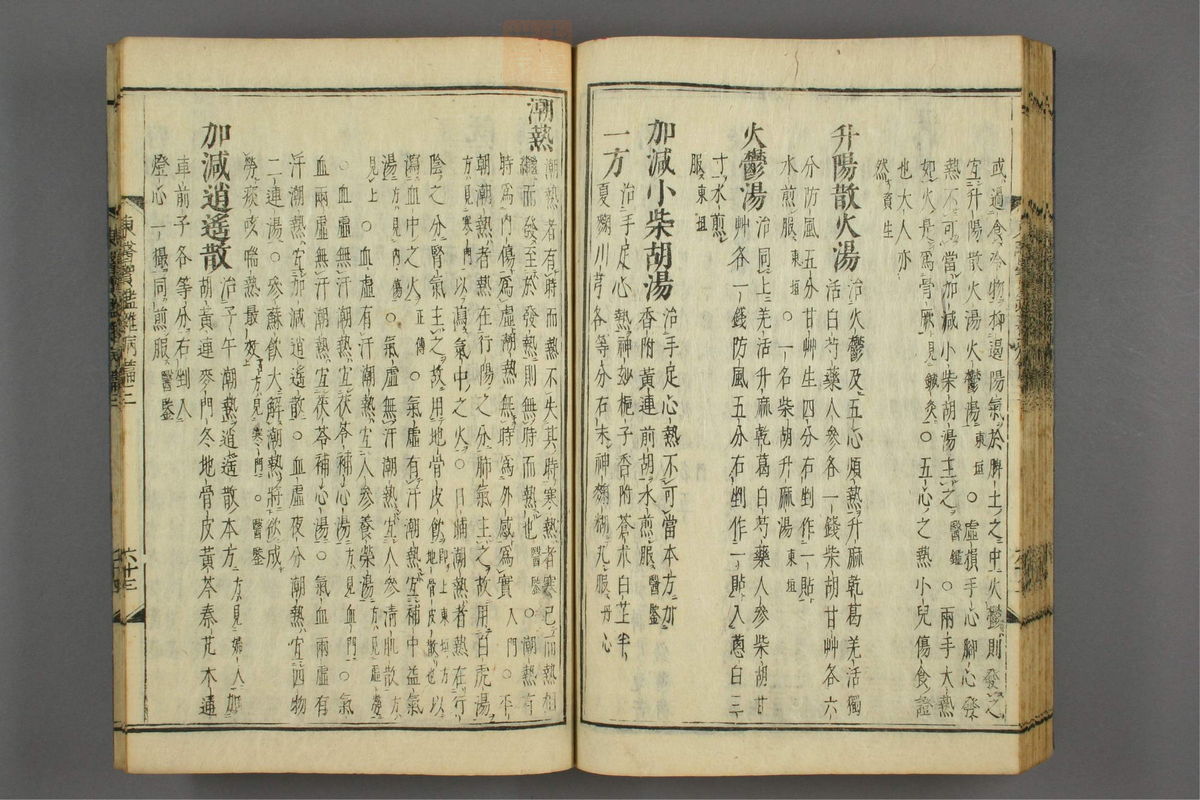 或過食冷物抑遏陽氣於脾土之中火鬱則發之
宜升陽散火湯火鬱湯東垣○虛損手心腳心發
熱不可當加減小柴胡湯主之醫鑑○兩手大熱
如火是爲骨厥見鍼灸○五心之熱小兒傷食證
也大人亦
然資生
升陽散火湯治火鬱及五心煩熱升麻乾葛羌活獨
活白芍藥人參各一錢柴胡甘艸各六
分防風五分甘艸生四分右剉作一貼
水煎服東垣○一名柴胡升麻湯東垣
火鬱湯治同上羌活升麻乾葛白芍藥人參柴胡甘
艸各一錢防風五分右剉作一貼入蔥白三
寸水煎
服東垣
加減小柴胡湯治手足心熱不可當本方加
香附黃連前胡水煎服醫鑑
一方治手足心熱神妙梔子香附蒼朮白芷半
夏麴川芎各等分右末神麴糊丸服丹心
潮熱
潮熱者有時而熱不失其時寒熱者寒已而熱相
繼而發至於發熱則無時而熱也醫鑑○潮熱有
時爲內傷爲虛潮熱無時爲外感爲實入門○平
朝潮熱者熱在行陽之分肺氣主之故用白虎湯
方見寒門以瀉氣中之火○日晡潮熱者熱在行
陰之分腎氣主之故用地骨皮飮卽上東垣方地骨皮散也以
瀉血中之火正傳○氣虛有汗潮熱宜補中益氣
湯方見內傷○氣虛無汗潮熱宜人參淸肌散方
見上○血虛有汗潮熱宜人參養榮湯方見虛勞
○血虛無汗潮熱宜茯苓補心湯方見血門○氣
血兩虛無汗潮熱宜茯苓補心湯○氣血兩虛有
汗潮熱宜加減逍遙散○血虛夜分潮熱宜四物
二連湯○參蘇飮大解潮熱將欲成
勞痰咳喘熱最效方見寒門○醫鑑
加減逍遙散治子午潮熱逍遙散本方方見婦人加
胡黃連麥門冬地骨皮黃芩秦艽木通
車前子各等分右剉入
燈心一撮同煎服醫鑑
東醫寶鑑雜病篇
六十三